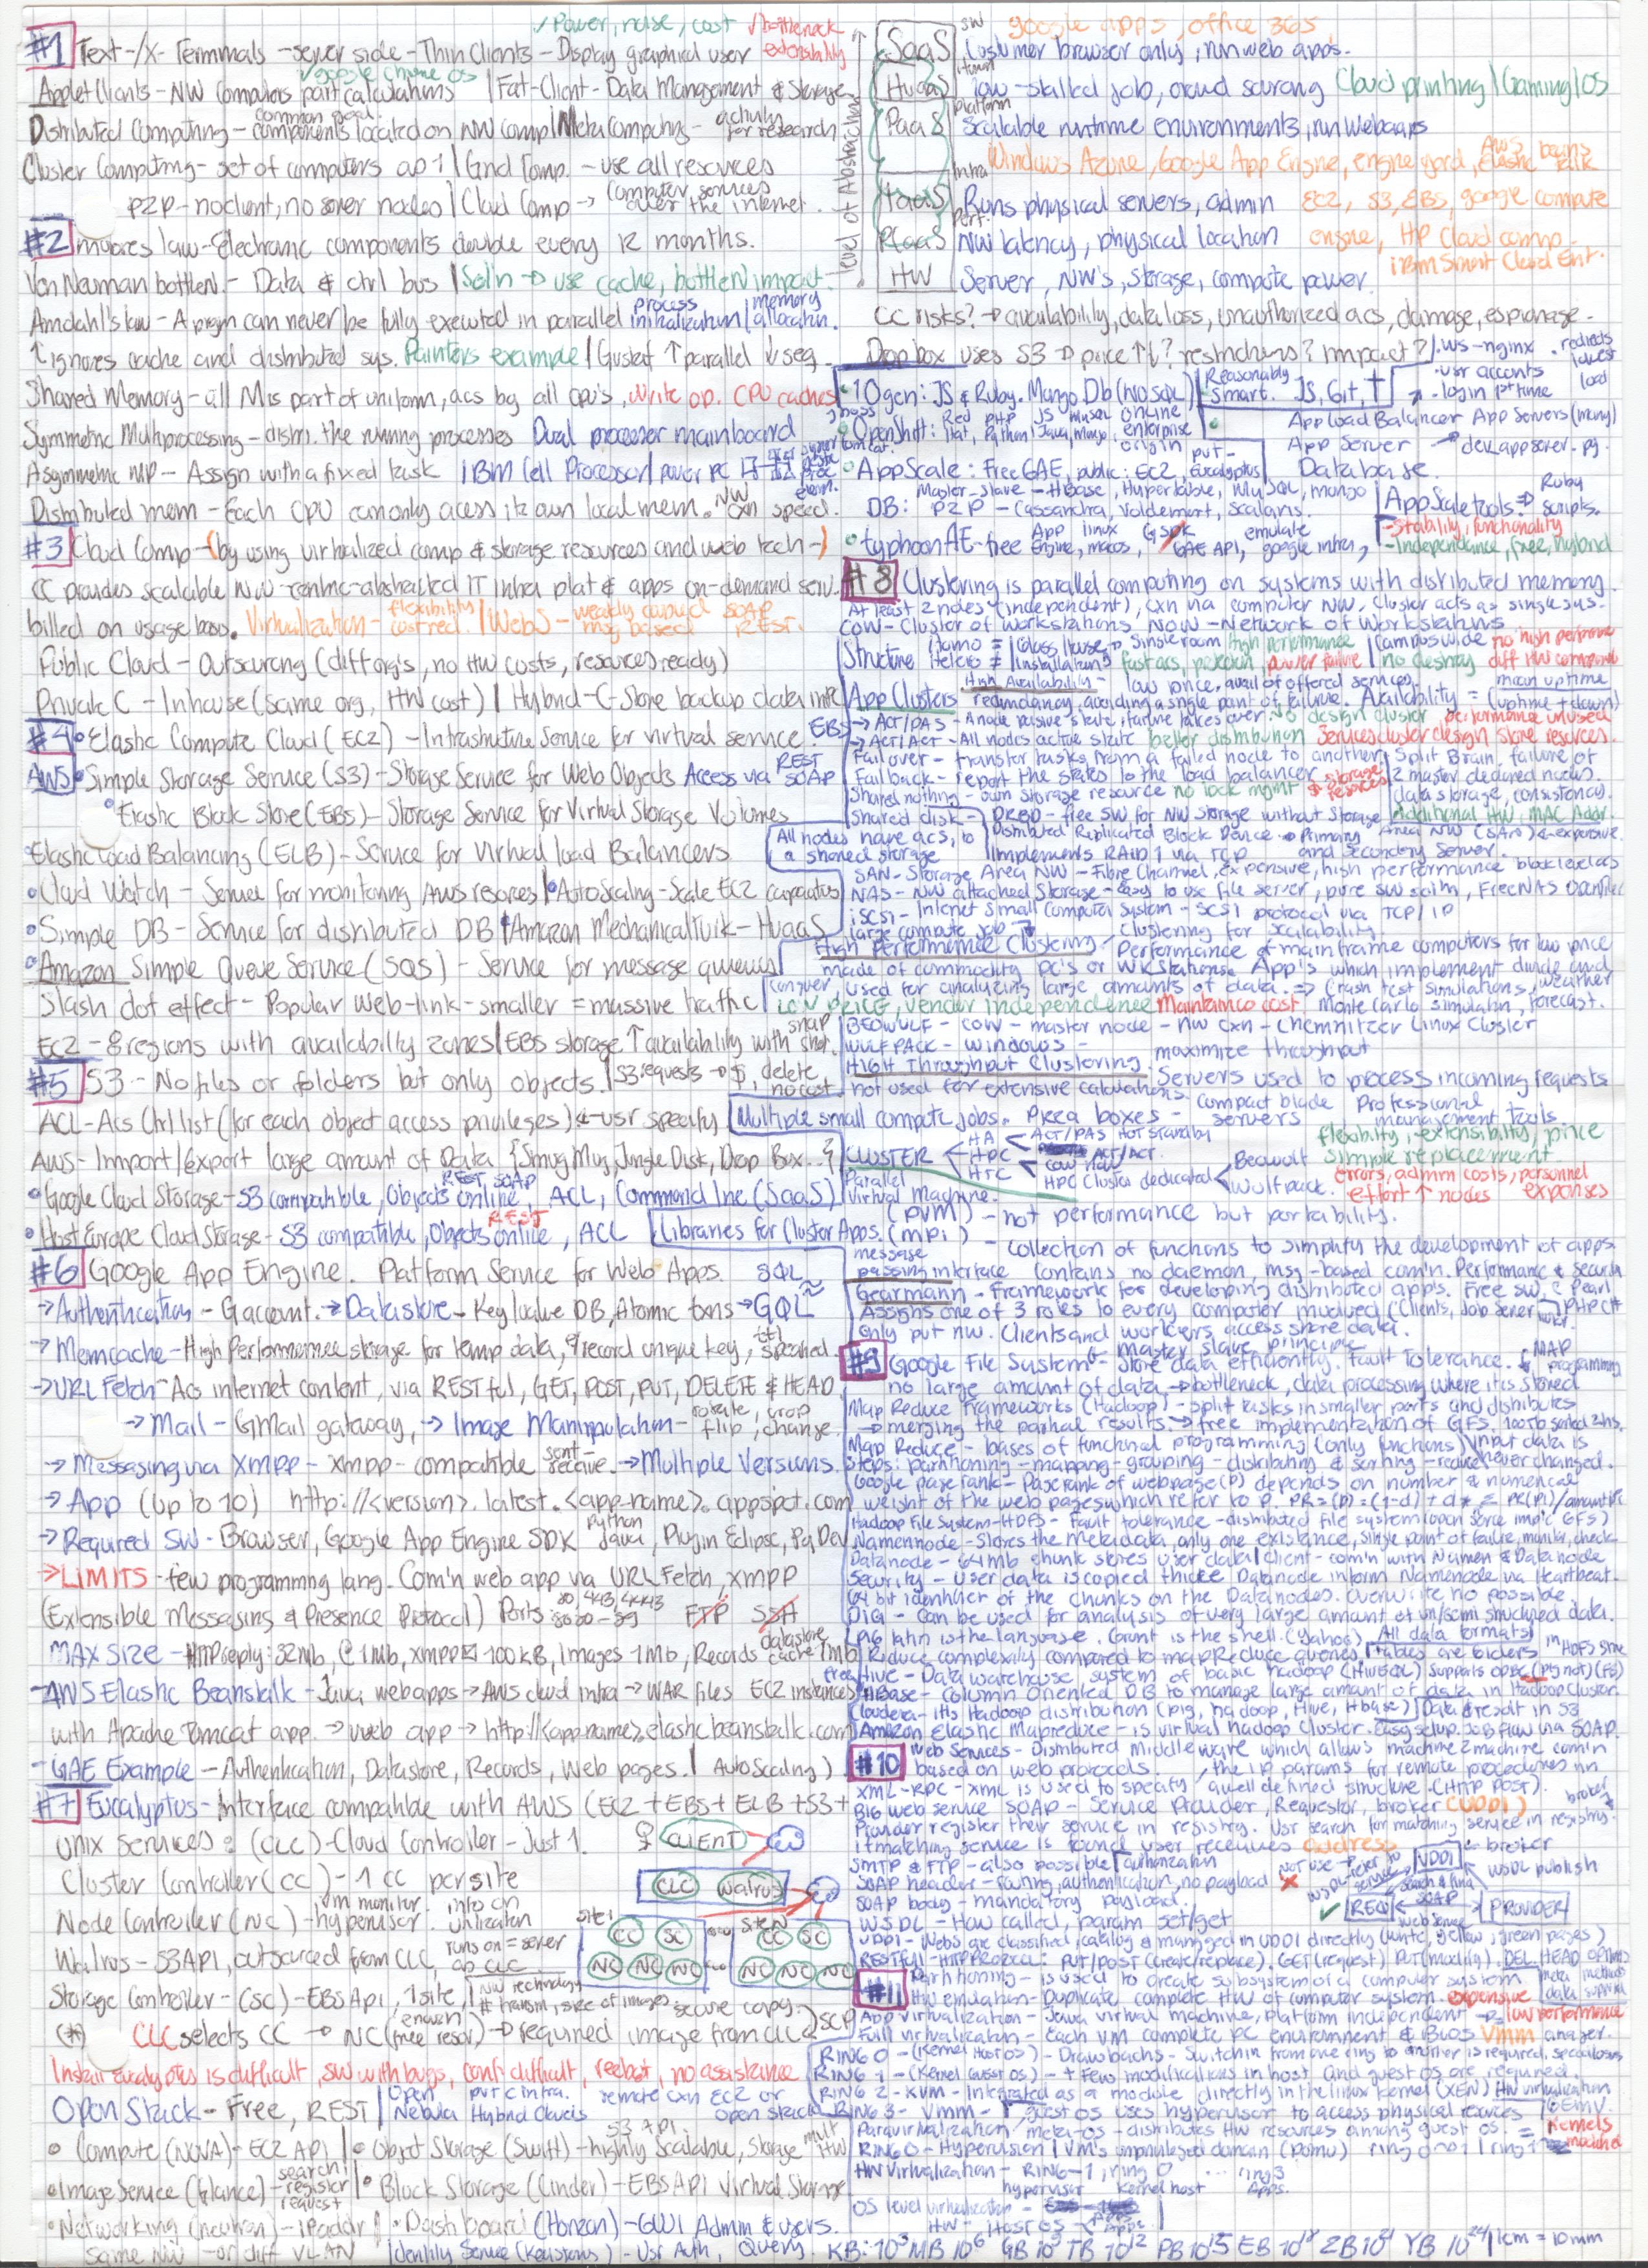 ✓Power, noise, cost ✓bottleneck
#1 Text-/X- Terminals - server side - Thin Clients - Display graphical user extensibility
✓google chrome OS
Applet Clients - NW Computers part calculations | Fat-Client - Data Management & Storage
common goal
Distributed Computing - components located on NW comp | Meta Computing - actively for research
Cluster Computing - set of computers as 1 | Grid Comp. - use all resources
P2P - no client, no server nodes | Cloud Comp → computer services over the internet.
#2 moores law - Electronic components double every 12 months.
Von Neuman bottlen. - Data & ctrl bus | Soln → use cache, bottleN impact
Amdahl's law - A prgm can never be fully executed in parallel process initialization | memory allocation.
↑ ignores cache and distributed sys. Painters example | Gustaf ↑ parallel ↓ seq.
Shared Memory - all M is part of uniform, acs by all cpu's, write op. CPU caches
Symmetric Multiprocessing - distri. the running processes Dual processor mainboard
Asymmetric MP - Assign with a fixed task IBM Cell Processor | power PC
Distributed mem - Each CPU can only acess its own local mem. NW cxn speed.
#3 Cloud Comp - (by using virtualized comp & storage resources and web tech -)
CC provides scalable NW-centric-abstracted IT infra plat & apps on-demand serv.
billed on usage basis. Virtualization - flexibility cost red. | WebS - weakly coupled msg based SOAP REST.
Public Cloud - Outsourcing (diff orgs, no HW costs, resources ready)
Private C - Inhouse (same org, HW cost) | Hybrid-C - Store backup data in PC
#4 • Elastic Compute Cloud (EC2) - Infrastructure Service for virtual service. EBS
AWS • Simple Storage Service (S3) - Storage Service for Web Objects Access via REST SOAP
• Elastic Block Store (EBS) - Storage Service for Virtual Storage Volumes
• Elastic Load Balancing (ELB) - Service for Virtual load Balancers
• Cloud Watch - Service for monitoring AWS resources | • AutoScaling - Scale EC2 capacities
• Simple DB - Service for distributed DB | • Amazon Mechanical Turk - HuaaS
• Amazon Simple Queue Service (SQS) - Service for message queues
Slash dot effect - Popular web-link - smaller = massive traffic
EC2 - 8 regions with availability zones | EBS storage ↑ availability with snap shot.
#5 S3 - No files or folders but only objects. | S3 requests → $, delete no cost
ACL - Acs Ctrl list (for each object access privileges) ← usr specify
AWS - Import/Export large amount of Data {Smug Mug, Jungle Disk, Drop Box..}
• Google Cloud Storage - S3 compatible, Objects online, REST, SOAP ACL, Command line (SaaS)
• Host Europe Cloud Storage - S3 compatible, Objects online REST, ACL
#6 Google App Engine. Platform Service for Web Apps. SQL
→ Authentication - G account. → Datastore - Key/value DB, Atomic txns → GQL
→ Memcache - High Performance storage for temp data, record unique key, ttl
→ URL Fetch - Acs internet content, via RESTful, GET, POST, PUT, DELETE & HEAD
→ Mail - GMail gateway, → Image Manipulation - rotate, crop flip, change
→ Messaging via XMPP - XMPP-compatible sent-receive. → Multiple Versions.
→ App (up to 10) http://<version>.latest.<app-name>.appspot.com
→ Required SW - Browser, Google App Engine SDK Python Java, Plugin Eclipse, PyDev
→ LIMITS - few programming lang. Com'n web app via URL Fetch, XMPP
(Extensible Messaging & Presence Protocol) Ports 80, 443, 4443 8080-89 FTP SSH
MAX Size - HTTP reply: 32Mb, @ 1Mb, xmpp 100kB, Images 1Mb, Records datastore cache 1Mb
→ AWS Elastic Beanstalk - Java webapps → AWS cloud infra → WAR files EC2 instances free
with Apache Tomcat app. → web app → http://<appname>.elasticbeanstalk.com
- GAE Example - Authentication, Datastore, Records, Web pages. | AutoScaling
#7 Eucalyptus - Interface compatible with AWS (EC2 + EBS + ELB + S3 +
Unix Services: (CLC) - Cloud Controller - Just 1. CLIENT
Cluster Controller (CC) - 1 CC per site CLC Walrus
Node Controller (NC) - vm monitor hypervisor. info on utilization
Site 1 CC SC Site N CC SC
Walros - S3API, outsourced from CLC, runs on = server as CLC NC NC NC NC NC NC
Storage Controller - (SC) - EBS Api, 1 site, NW technology # transm, size of images secure copy
(*) CLC selects CC → NC (enough free resor) → required image from CLC SCP
Install eucalyptus is difficult, SW with bugs, conf difficult, reboot, no assistance
Open Stack - Free, REST | Open Nebula pvt c intra. Hybrid Clouds remote cxn EC2 or open stack
• Compute (NOVA) - EC2 API | • Object Storage (Swift) - S3 API highly scalable, Storage mult HW
• Image Service (Glance) - search register request | • Block Storage (Cinder) - EBS API Virtual Storage
• Networking (neutron) - ipaddr | • Dashboard (Horizon) - GUI Admin & users.
same NW - or diff VLAN Identity Service (Keystone) - Usr Auth, Query.
level of Abstraction
SaaS SW google apps, office 365
Costumer browser only, run web apps.
HuaaS human low-skilled job, crowd sourcing Cloud printing | Gaming | OS
PaaS platform Scalable runtime environments, run Webapps
Windows Azure, Google App Engine, engine yard, AWS elastic beans talk
IaaS infra Runs physical servers, admin EC2, S3, EBS, google compute
NW latency, physical location engine, HP Cloud comp
HW Server, NW's, storage, compute power. IBM Smart Cloud Ent.
CC risks? → availability, data loss, unauthorized acs, damage, espionage.
Dropbox uses S3 → price ↑↓? restrictions? impact? ws-nginx . redirects lowest load
• 10gen: JS & Ruby. Mongo Db (NoSQL) Reasonably Smart. JS, Git, ↑ . usr accounts . login 1st time
• OpenShift: Red Hat, PHP Python, JS Java, MySQL mongo, online enterprise origin App Load Balancer App Servers (many)
App Server → dev.appserver.py.
• AppScale: Free GAE, public: EC2, put- eucalyptus Database.
DB: Master-slave - Hbase, Hypertable, MySQL, mongo P2P - Cassandra, Voldemort, Scalaris. AppScale tools → Ruby scripts.
- Stability, functionality
• typhoonAE - free App Engine, linux macos, GSDK GAE API, emulate google infra, - independance, free, hybrid
#8 Clustering is parallel computing on systems with distributed memory.
At least 2 nodes (independent), cxn via computer NW. Cluster acts as single sys.
COW - Cluster of Workstations NOW - Network of Workstations
Structure Homo = Hetero ≠ Glass house → Single room Installation high performance fast acs, protection power failure | Campus wide no high performe no destroy diff HW component
High Availability - low price, avail of offered services. mean uptime
App Clusters redundancy, avoiding a single point of failure. Availability = (uptime + down)
→ ACT/PAS - A node passive state, failure takes over. No design cluster, performance unused
→ ACT/ACT - All nodes active state better distribution Services cluster design store resources.
Failover - transfer tasks from a failed node to another Split Brain, failure of
Failback - report the states to the load balancer 2 master declared nodes.
Shared nothing - own storage resource no lock mgmt $ storage resources data storage, consistency).
Shared disk - DRBD - free SW for NW Storage without Storage additional HW, MAC Addr.
All nodes have acs, to a shared storage Distributed Replicated Block Device → Primary Area NW (SAN) ← expensive
implements RAID 1 via TCP and Secondary Server.
SAN - Storage Area NW - Fibre Channel, expensive, high performance block level acs
NAS - NW attached Storage - easy to use file server, pure SW soltn, FreeNAS Openfiler
iSCSI - Internet small computer system - SCSI protocol via TCP/IP
large compute job clustering for scalability
High Performance Clustering - Performance of mainframe computers for low price
made of commodity pc's or wkstations. App's which implement divide and
conquer used for analyzing large amounts of data. ⇒ Crash test simulations, weather
LOW PRICE, vendor independence Maintaince cost Monte Carlo simulatn, forecast.
BEOWULF - COW - master node - NW cxn - Chemnitzer Linux Cluster
WULFPACK - windows -
High Throughput Clustering. maximize throughput
not used for extensive calculations. Servers used to process incoming requests
Multiple small compute jobs. Pizza boxes - compact blade servers Professional management tools
CLUSTER HA ACT/PAS Hot Standby ACT/ACT. HPC COW NOW HTC HPC Cluster dedicated Beowolf Wulfpack. flexibility, extensibility, price simple replacement errors, admin costs, personnel effort ↑ nodes expenses
Parallel Virtual Machine. (PVM) - not performance but portability.
Libraries for Cluster Apps. (mpi) - collection of functions to simplify the development of apps
message passing interface contains no daemon, msg-based com'n. Performance & security
Gearmann - Framework for developing distributed app's. Free SW, Pearl PHP C#
Assigns one of 3 roles to every computer involved (Clients, Job Server
Only pvt nw. Clients and workers access share data.
#9 Google File System - master slave principle Store data efficiently. Fault Tolerance. MAP programming
no large amount of data → bottleneck, data processing where it is stored
Map Reduce Frameworks (Hadoop) - split tasks in smaller parts and distributes
→ merging the partial results → free implementation of GFS.
Map Reduce - bases of functional programming (only functions) input data is
Steps: partitioning - mapping - grouping - distributing & sorting - reduce never changed.
Google page rank - Pagerank of webpage (P) depends on number & numerical
weight of the web pages which refer to P.
Hadoop File System - HDFS - Fault tolerance - distributed file system (open sorce impl GFS)
Namennode - Stores the metadata, only one existance, single point of failure, monitor, check
Datanode - 64mb chunk stores user data | client - com'n with Namen & Datanode
Security - User data is copied thrice Datanode inform Namenode via Heartbeat.
64 bit identifier of the chunks on the Datanodes. Overwrite no possible
PIG - Can be used for analysis of very large amount of un/semi structured data.
Pig latin is the language. Grunt is the shell. (Yahoo) All data formats
Reduce complexity compared to mapReduce queries. Tables are folders in HDFS store
Hive - Data warehouse system of basic hadoop (HiveQL) supports ODBC (pig not) (FB)
HBase - Column Oriented DB to manage large amount of data in Hadoop Cluster.
Cloudera - its Hadoop distribution (pig, hadoop, Hive, Hbase) | Data & result in S3
Amazon Elastic Mapreduce - is virtual hadoop cluster. Easy setup. Job flow via SOAP.
#10 Web Services - Distributed Middleware which allows machine2machine com'n
based on web protocols. the I/P params for remote procedures in
XML-RPC - xml is used to specify a well defined structure. (HTTP POST).
BIG web service SOAP - Service Provider, Requestor, broker (UDDI)
Provider register their service in registry. Usr search for matching service in registry.
if matching service is found user receives address
SMTP & FTP - also possible | authorization UDDI ← broker
SOAP header - routing, authentication, no payload WSDL publish
SOAP body - mandatory payload. REQ SOAP PROVIDER
WSDL - How called, param set/get Web Service
UDDI - WebS are classified, catalog & managed in UDDI directly (white, yellow, green pages)
RESTful - HTTP PROTOCOL: PUT/POST (create/replace). GET(request) PUT(modify). DEL, HEAD OPTIONS
#11 Partitioning - is used to create subsystem of a computer system
HW emulation - Duplicate complete HW of computer system. expensive → low performance
App Virtualization - Java virtual machine, platform independent
Full virtualization - Each VM complete PC environment & BIOS VMM anager.
RING 0 - (Kernel Host OS) - Drawbacks - Switchin from one ring to another is required,
RING 1 - (Kernel Guest OS) - + Few modifications in host and guest OS are required
RING 2 - KVM - Integrated as a module directly in the linux kernel (XEN) HW virtualization
RING 3 - VMM - guest OS uses hypervisor to access physical resorces
Paravirtualization - meta-OS - distributes HW resources among guest OS. = Kernels
RING 0 - Hypervisor | VM's unprivileged domain (DomU)
HW Virtualization - RING -1, ring 0 ... ring 3
hypervisor Kernel host Apps.
OS level virtualization -
HW - Host OS - Apps
KB: 10³ MB 10⁶ GB 10⁹ TB 10¹² PB 10¹⁵ EB 10¹⁸ ZB 10²¹ YB 10²⁴ | 1cm = 10mm